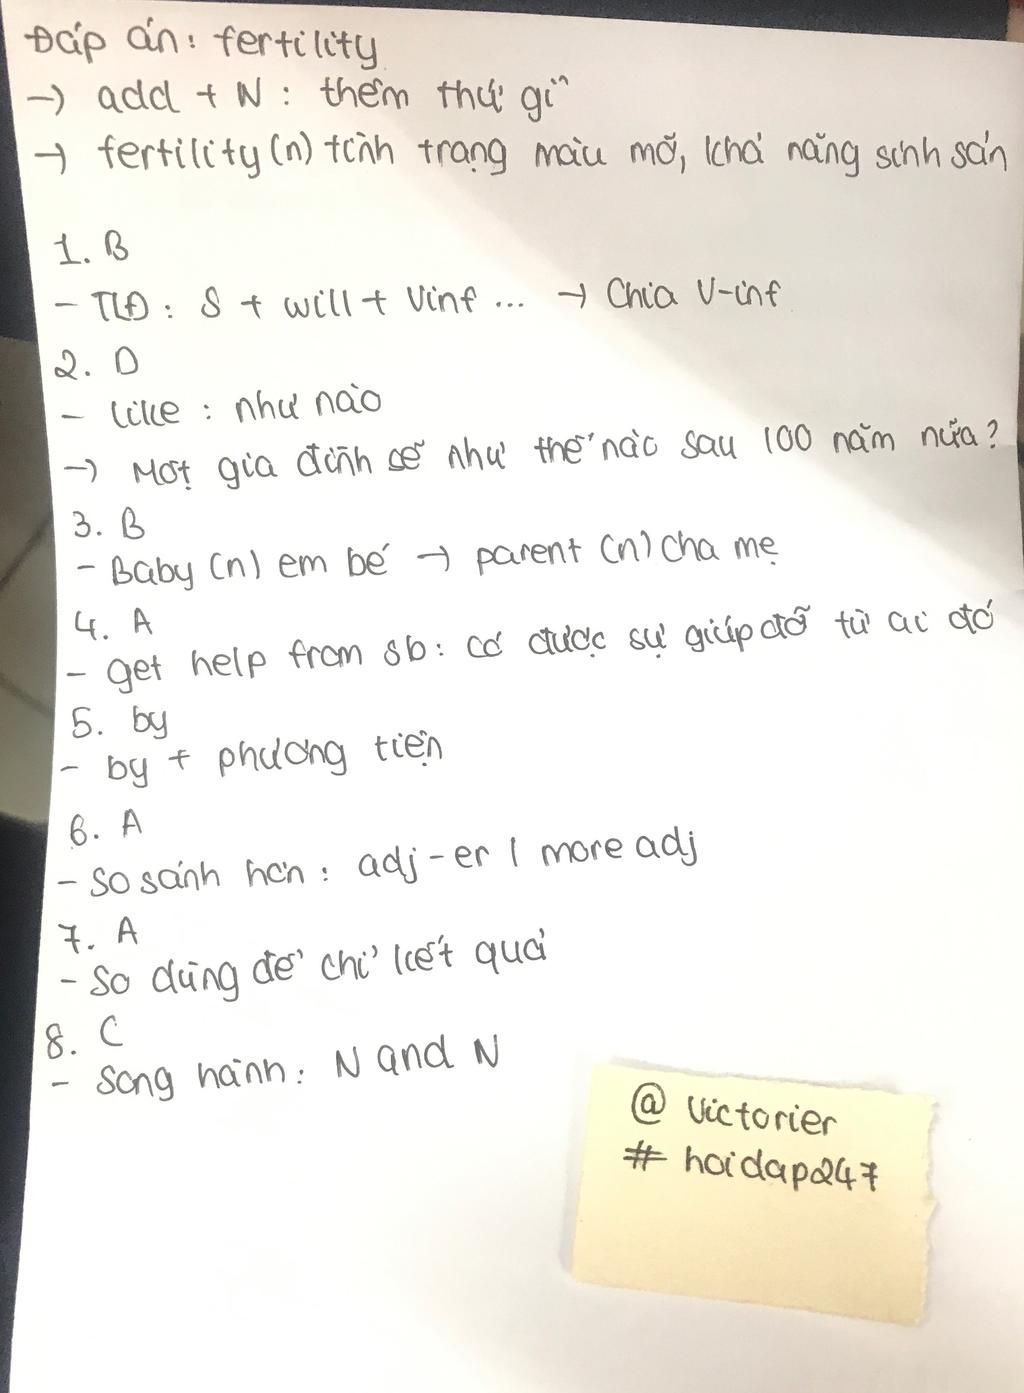 Đáp án: fertility
→ add + N: thêm thứ gì
→ fertility (n) tình trạng màu mỡ, khả năng sinh sản
1. B
- TLĐ: S + will + Vinf ... → Chia V-inf
2. D
- like: như nào
→ Một gia đình sẽ như thế nào sau 100 năm nữa?
3. B
- Baby (n) em bé → parent (n) cha mẹ
4. A
- get help from sb: có được sự giúp đỡ từ ai đó
5. by
- by + phương tiện
6. A
- So sánh hơn: adj-er / more adj
7. A
- So dùng để chỉ kết quả
8. C
- Song hành: N and N
@ Victorier
# hoidap247